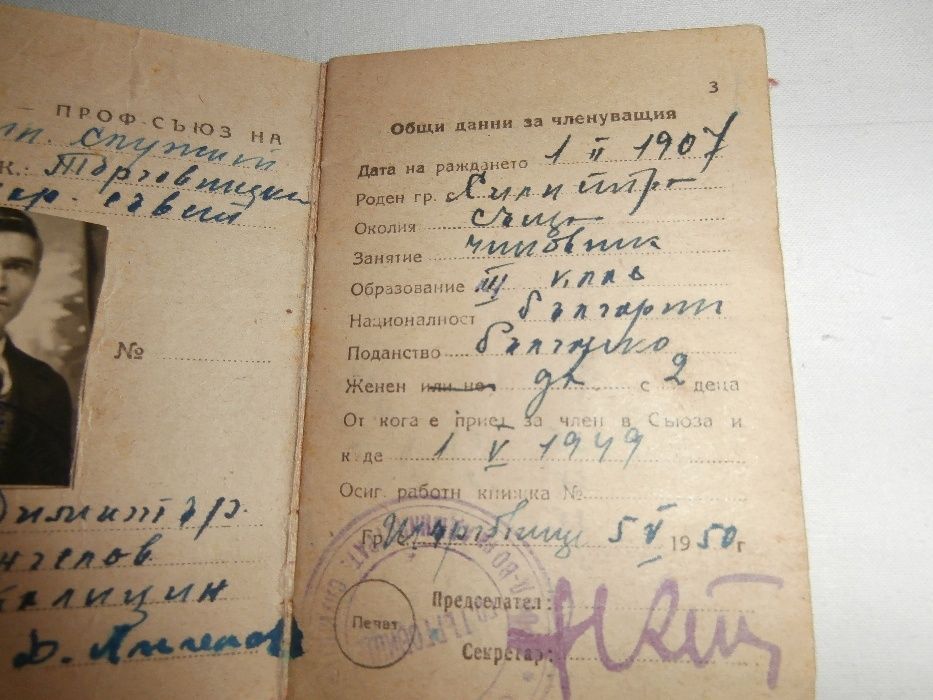 ПРОФ-СЪЮЗ НА
служит
К.: Търговищки
съвет
№
Ангелов
3
Общи данни за членуващия
Дата на раждането 1 II 1907
Роден гр. с. Силистра
Околия също
Занятие чиновник
Образование III клас
Националност българин
Поданство българско
Женен или не да с 2 деца
От кога е приет за член в Съюза и
къде 1 V 1949
Осиг. работн книжка №
Гр. 5 V 1950 г
Председател:
Печат
Секретар: